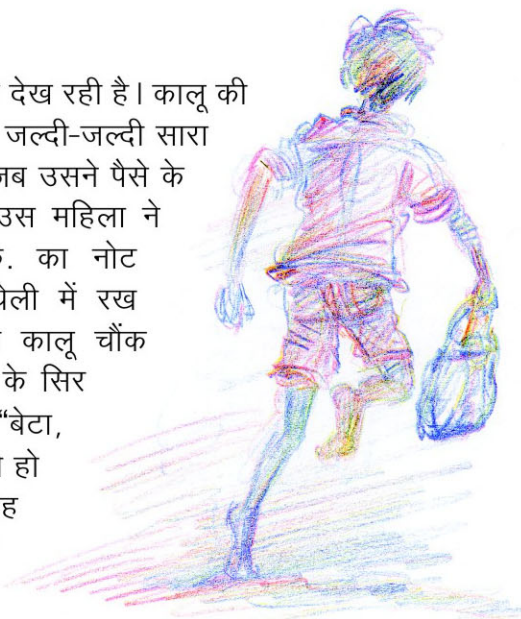 देख रही है। कालू की
जल्दी-जल्दी सारा
उसने पैसे के
उस महिला ने
का नोट
में रख
कालू चौंक
के सिर
“बेटा,
हो